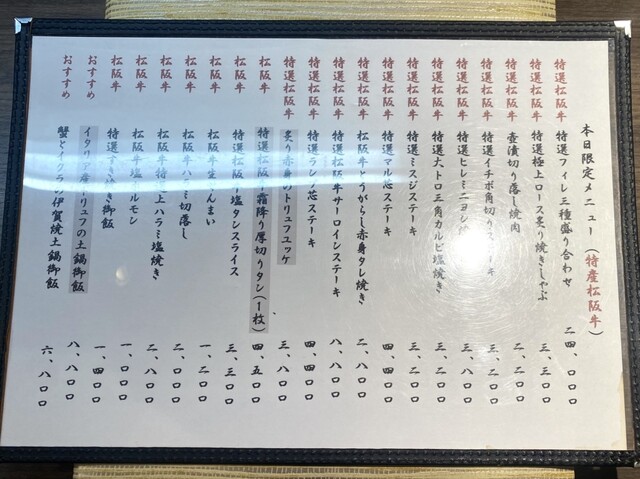 本日限定メニュー（特産松阪牛）
特選松阪牛 特選フィレ三種盛り合わせ 二四、〇〇〇
特選松阪牛 特選極上ロース炙り焼きしゃぶ 三、三〇〇
特選松阪牛 壺漬切り落し焼肉 二、二〇〇
特選松阪牛 特選イチボ角切りステーキ 三、二〇〇
特選松阪牛 特選ヒレミニヨン 三、八〇〇
特選松阪牛 特選大トロ三角カルビ塩焼き 三、二〇〇
特選松阪牛 特選ミスジステーキ 二、二〇〇
特選松阪牛 特選マル芯ステーキ 四、四〇〇
特選松阪牛 松阪牛とうがらし赤身タレ焼き 二、八〇〇
特選松阪牛 特選松阪牛サーロインステーキ 八、八〇〇
特選松阪牛 特選ラン芯ステーキ 四、四〇〇
特選松阪牛 炙り赤身のトリュフユッケ 三、八〇〇
松阪牛 特選松阪牛霜降り厚切りタン（1枚） 四、五〇〇
松阪牛 特選松阪牛塩タンスライス 三、三〇〇
松阪牛 松阪牛生せんまい 一、二〇〇
松阪牛 松阪牛ハラミ切落し 二、〇〇〇
松阪牛 松阪牛特選上ハラミ塩焼き 二、八〇〇
松阪牛 松阪牛塩ホルモン 一、〇〇〇
松阪牛 特選すき焼き御飯 一、四〇〇
おすすめ イタリア産トリュフの土鍋御飯 八、八〇〇
おすすめ 蟹とイクラの伊賀焼土鍋御飯 六、八〇〇